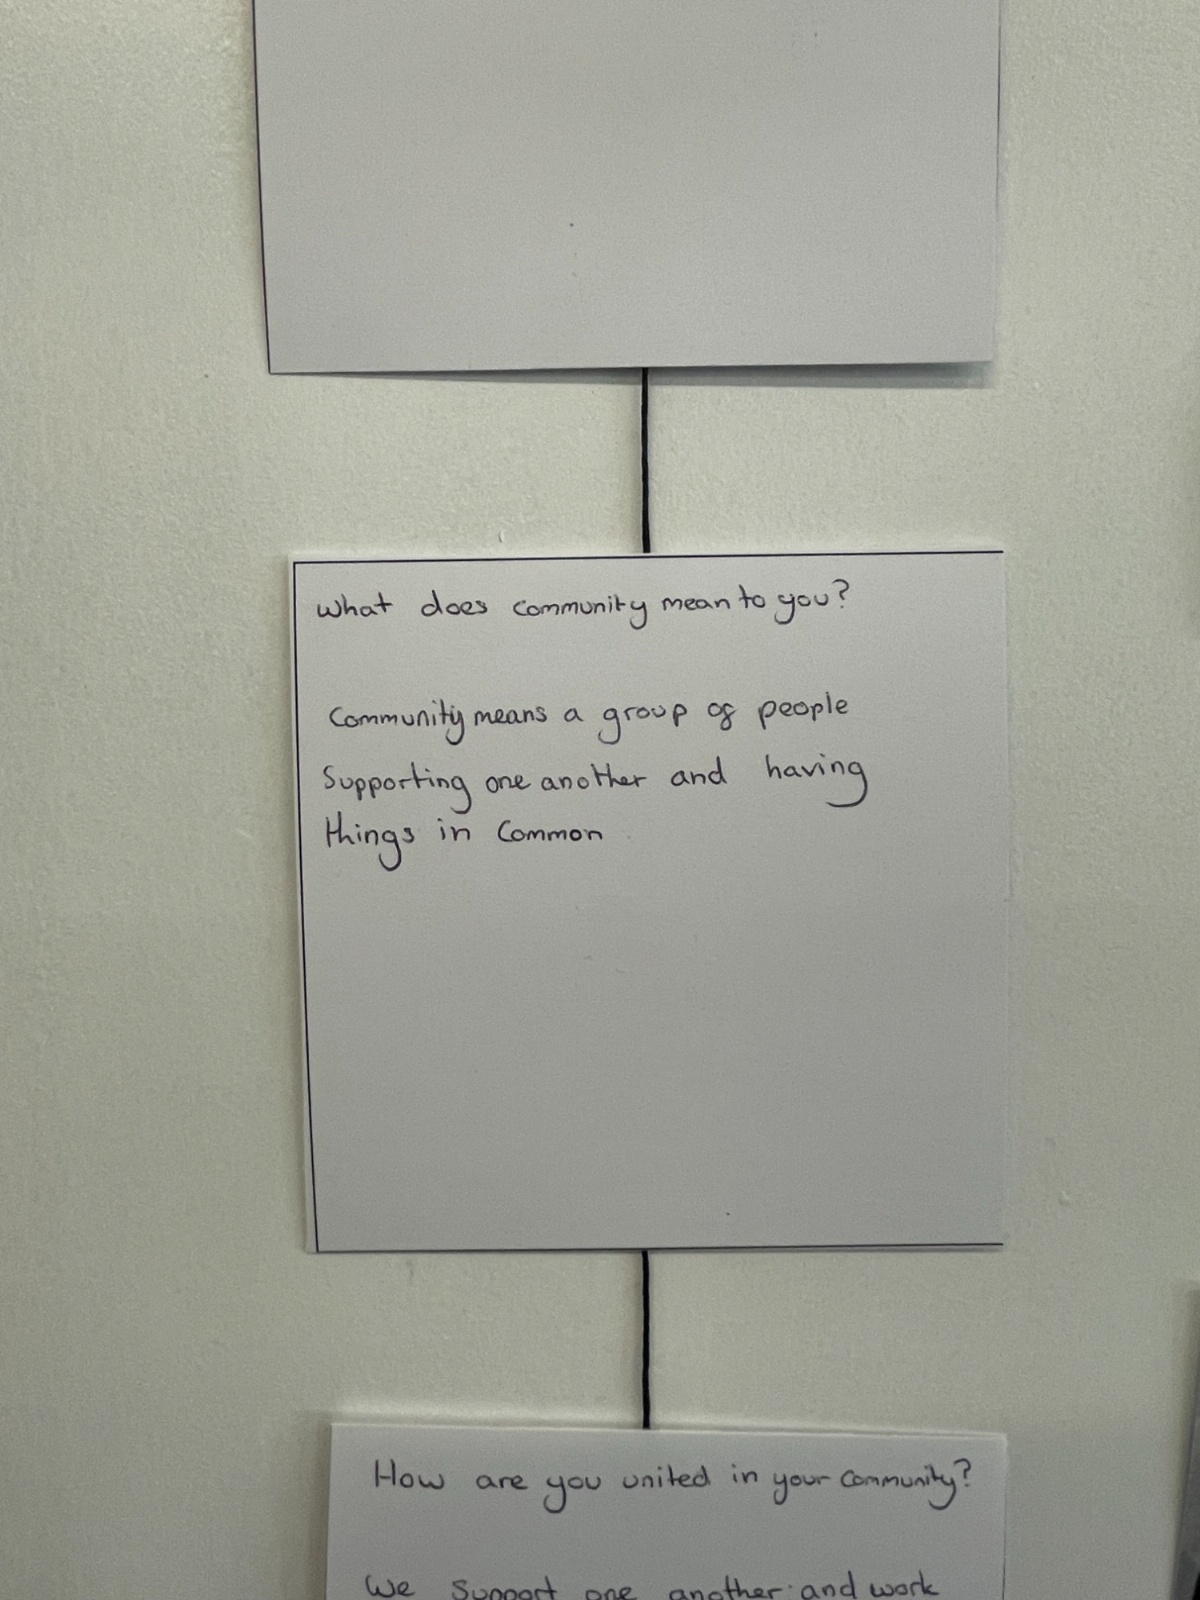 What does community mean to you?
Community means a group of people
Supporting one another and having
things in Common
How are you united in your Community?
We support one another and work